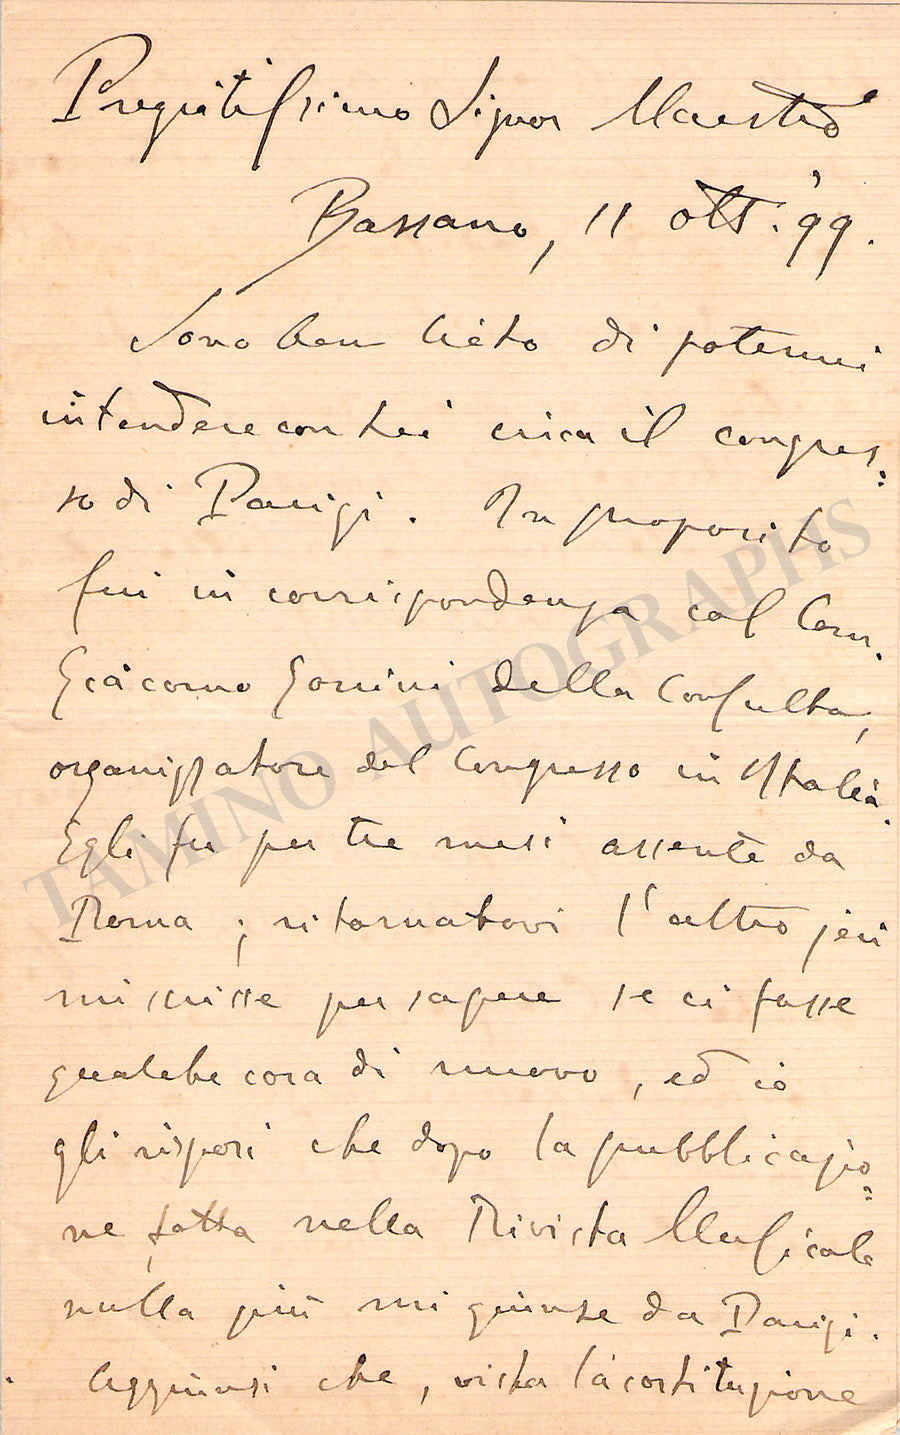 Pregiatissimo Signor Maestro
Bassano, 11 ott. '99.
Sono ben lieto di potermi
intendere con Lei circa il congres=
so di Parigi. In proposito
fui in corrispondenza col Com.
Giacomo Gorrini della Consulta,
organizzatore del Congresso in Italia.
Egli fu per tre mesi assente da
Roma; ritornatovi l'altro jeri
mi scrisse per sapere se ci fosse
qualche cosa di nuovo, ed io
gli risposi che dopo la pubblicazio=
ne fatta nella Rivista Musicale
nulla più mi giunse da Parigi.
Aggiunsi che, vista la costituzione
TAMINO AUTOGRAPHS